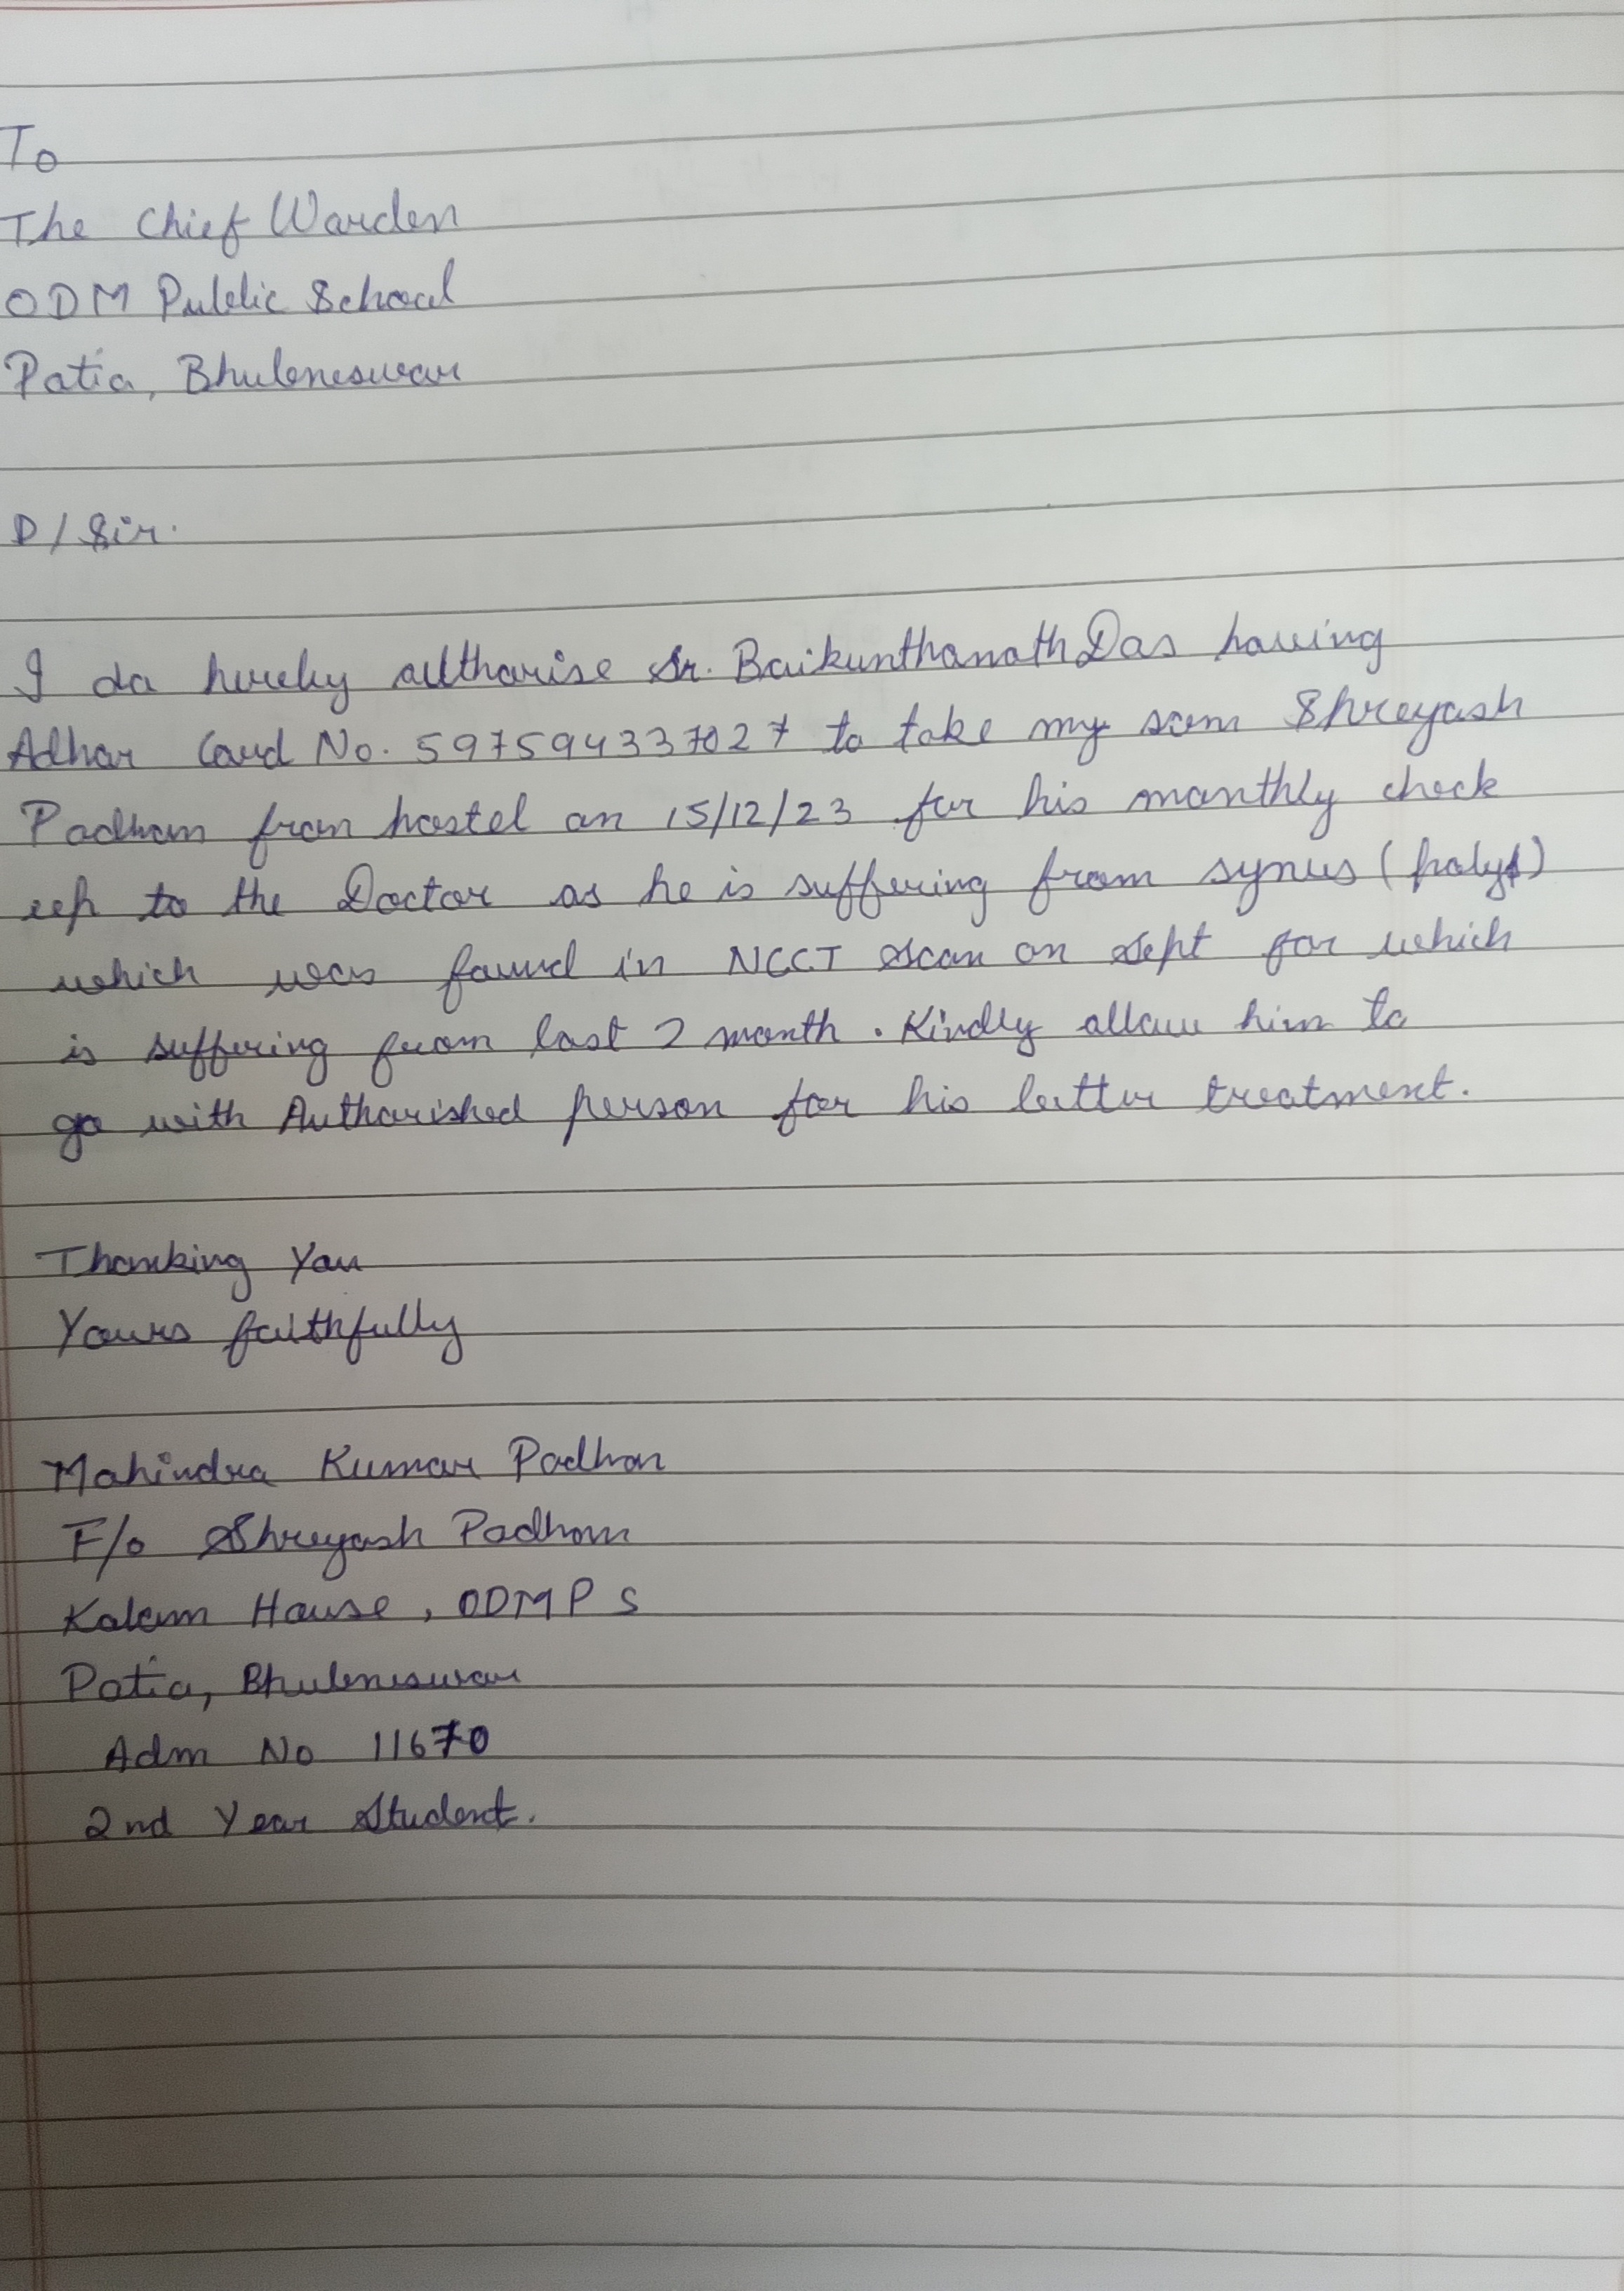 To
The Chief Warden
ODM Public School
Patia, Bhubneswar
D/Sir.
I do hereby authorise Sr. Baikunthanath Das having
Adhar Card No. 597594337027 to take my son Shreyash
Padhan from hostel on 15/12/23 for his monthly check
up to the Doctor as he is suffering from synus (polyp)
which was found in NCCT scan on Sept for which
is suffering from last 2 month. Kindly allow him to
go with Authorished person for his better treatment.
Thanking You
Yours faithfully
Mahindra Kumar Padhan
F/o Shreyash Padhan
Kalam House, ODMPS
Patia, Bhubneswar
Adm No 11670
2nd Year Student.